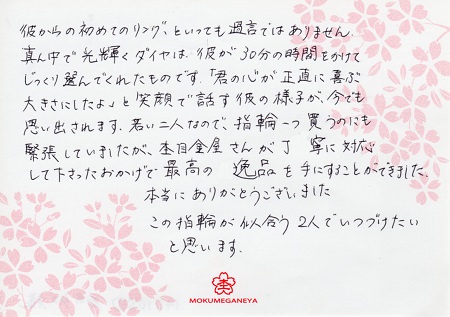 彼からの初めてのリング、といっても過言ではありません。
真ん中で光輝くダイヤは、彼が30分の時間をかけて
じっくり選んでくれたものです。「君の心が正直に喜ぶ
大きさにしたよ」と笑顔で話す彼の様子が、今でも
思い出されます。若い二人なので、指輪一つ買うのにも
緊張していましたが、杢目金屋さんが丁寧に対応
して下さったおかげで最高の逸品を手にすることができました。
本当にありがとうございました
この指輪が似合う2人でいつづけたい
と思います。
MOKUMEGANEYA